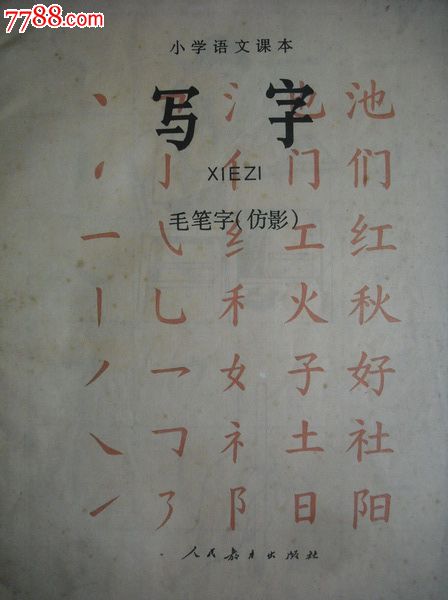 7788.com
小学语文课本
写字
XIEZI
毛笔字(仿影)
丶 ㇆ 氵 也 池
亅 亻 门 们
一 ㇂ 纟 工 红
丨 乚 禾 火 秋
丿 乛 女 子 好
㇏ 𠃌 礻 土 社
㇀ 阝 日 阳
人民教育出版社